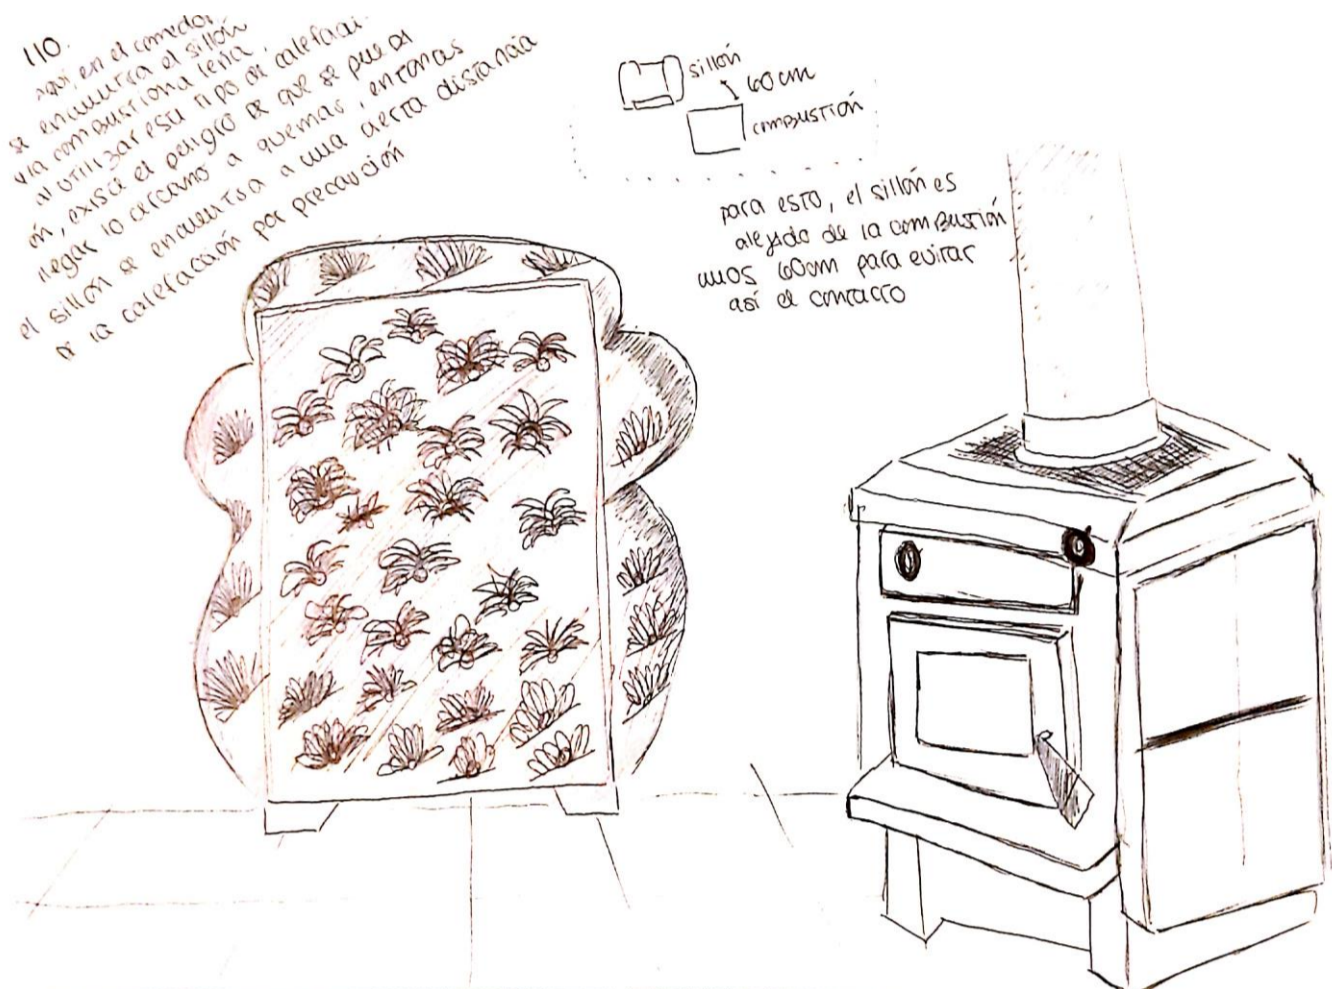 110.
aquí, en el comedor,
se encuentra el sillón
y la combustiona leña,
al utilizar este tipo de calefacci-
ón, existe el peligro de que se pueda
llegar lo cercano a quemar, entonces
el sillón se encuentra a una cierta distancia
de la calefacción por precaución
sillón
60 cm
combustión
para esto, el sillón es
alejado de la combustión
unos 60cm para evitar
así el contacto